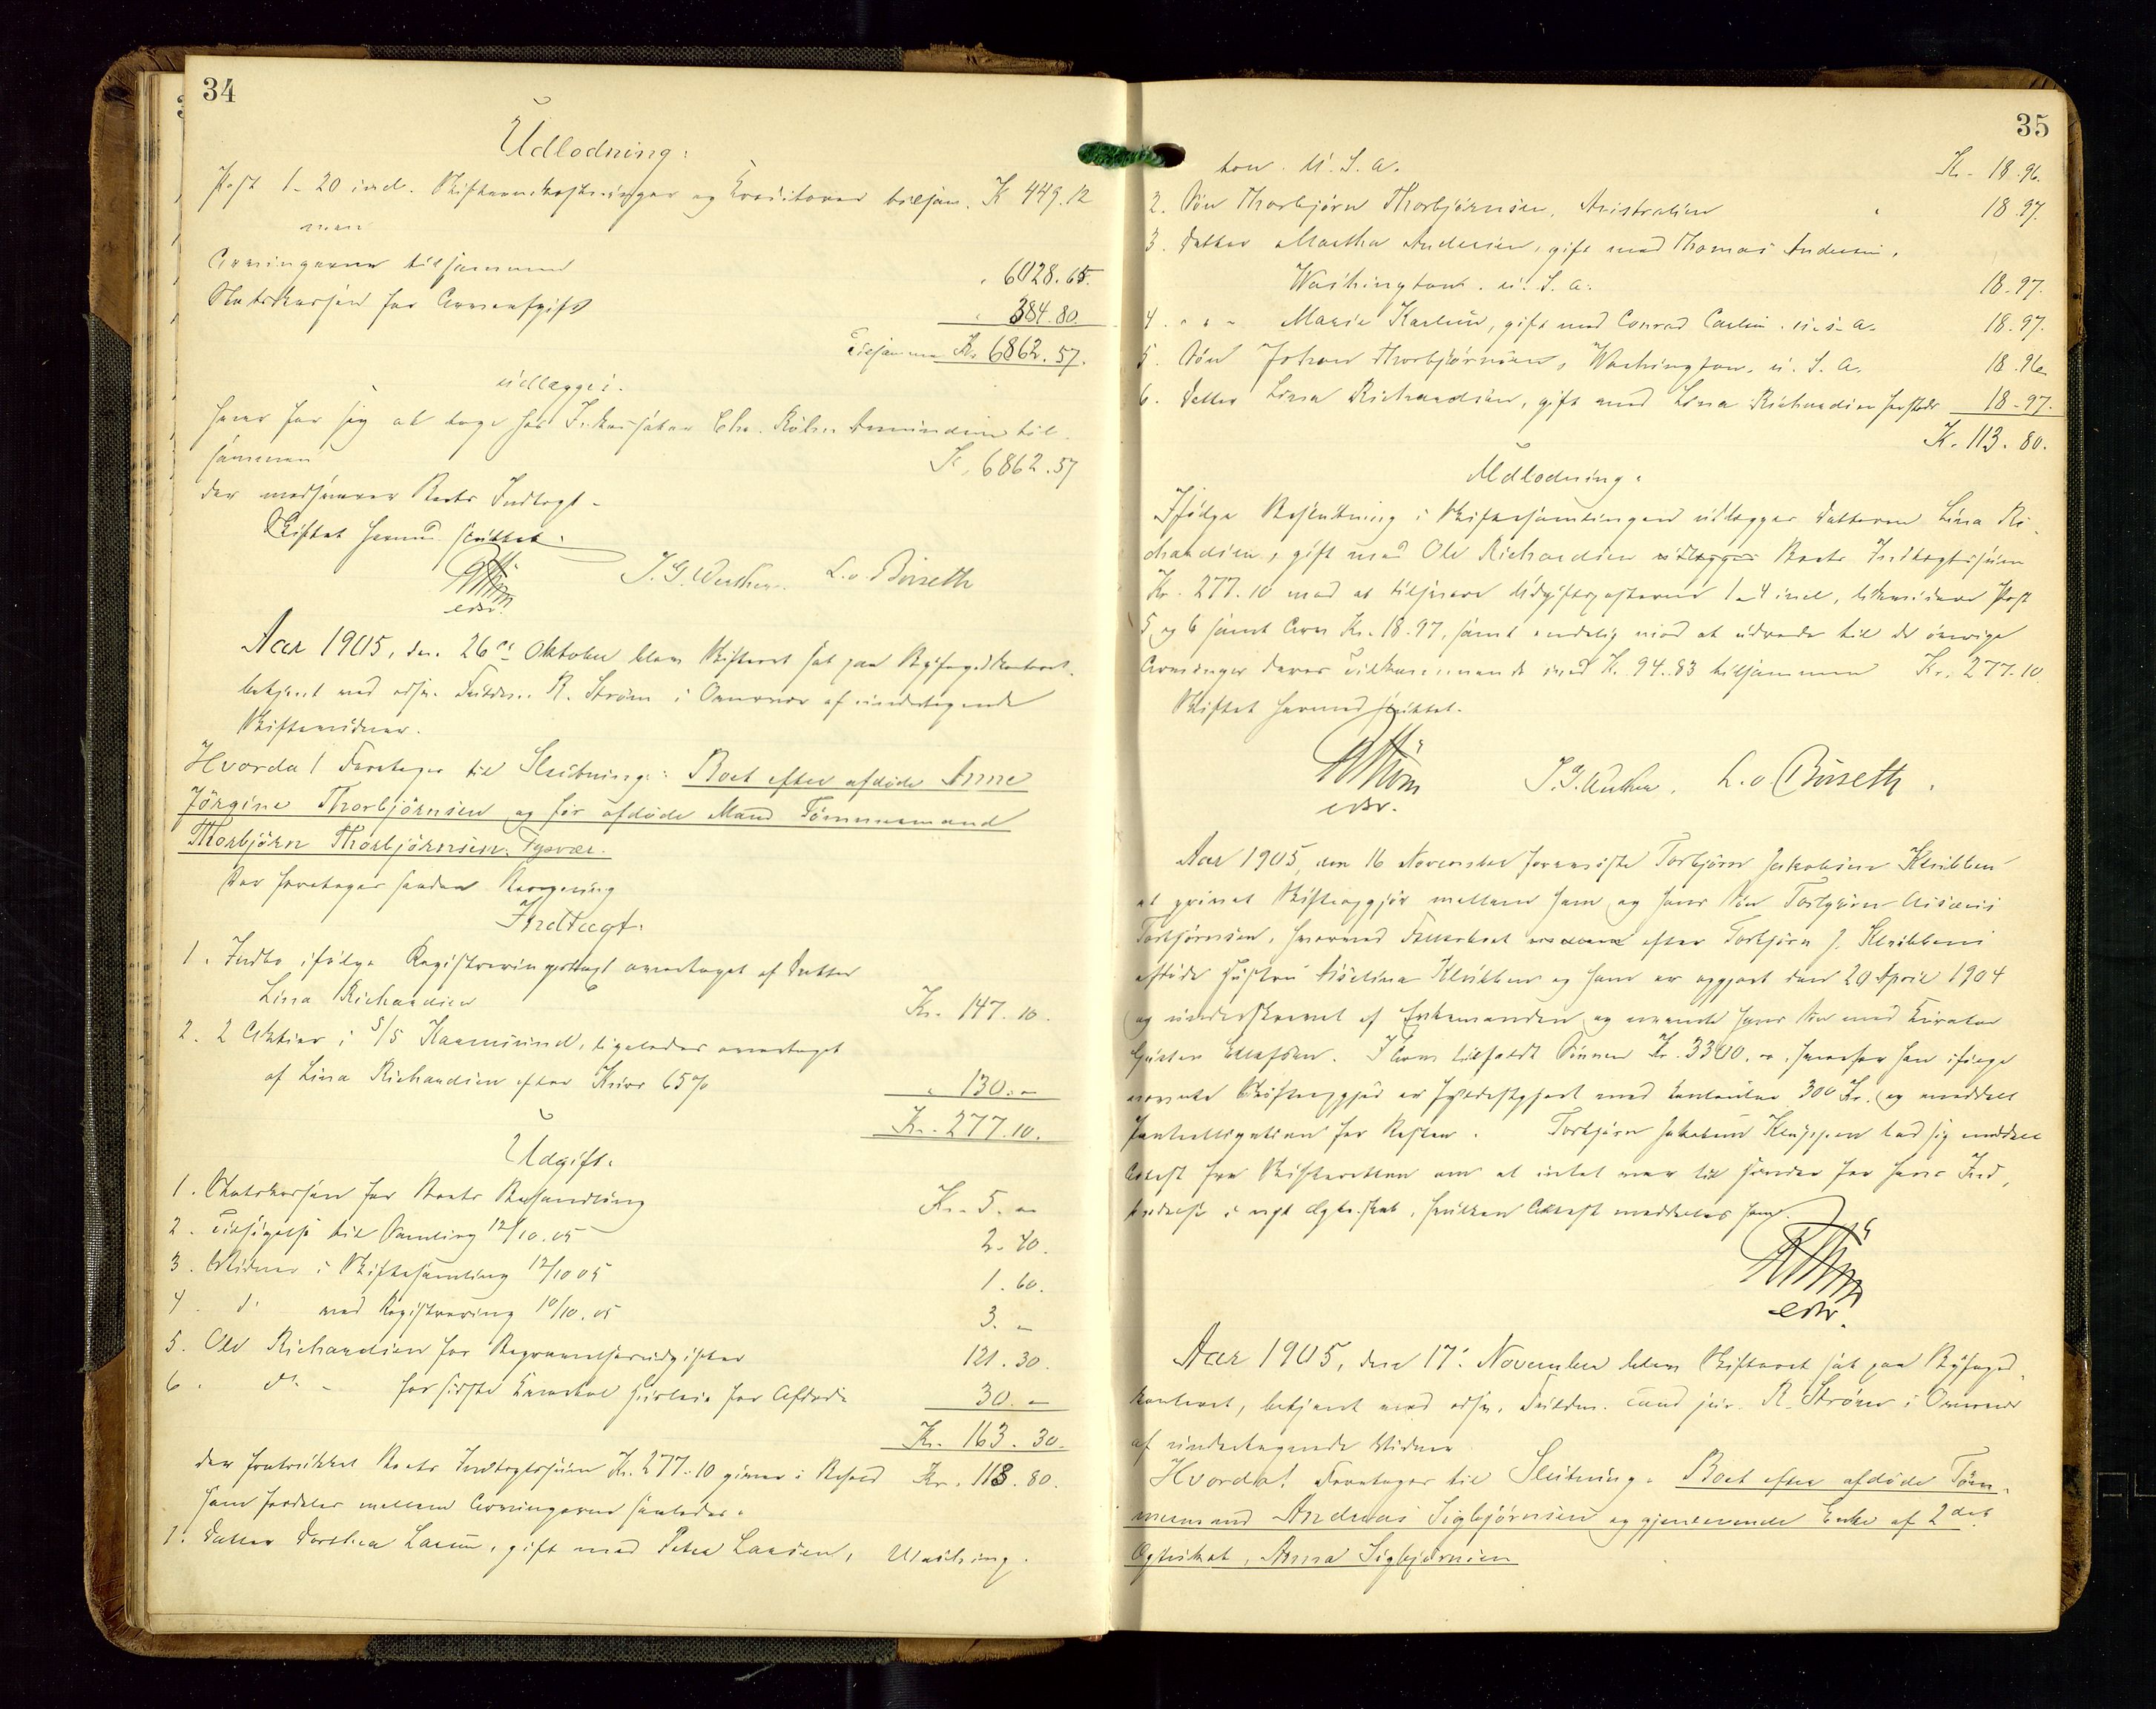 34
Udlodning:
Post 1-20 incl. Skifteomkostninger og Kreditorer tilsam- K 449.12
men
Arvingerne tilsammen " 6028.65.
Statskassen for Arveafgift " 384.80.
Tilsammen Kr. 6862.57.
udlægges
hver for sig at tage hos Inkassator Chr. Amundsen til-
sammen K. 6862.57
der modsvarer Boets Indtægt.
Skiftet hermed sluttet.
RStrøm J. G. Wersher. L. o. Børseth
edsv.
Aar 1905, den 26de Oktober blev Skifteret sat paa Byfogedkontoret,
betjent ved edsv. Fuldm. R. Strøm i Overvær af undertegnede
Skiftevidner.
Hvorda! Foretages til Slutning: Boet efter afdøde Anne
Jörgine Thorbjörnsen og før afdøde Mand Tømmermand
Thorbjörn Thorbjörnsen, Tysvær.
Der foretages saadan Beregning
Indtægt.
1. Indbo ifølge Registreringsforretning overtaget af Datter
Lina Richardsen Kr. 147.10.
2. 2 Aktier i S/S Karmsund, ligeledes overtaget
af Lina Richardsen efter Kurs 65% " 130.-
Kr. 277.10.
Udgift.
1. Statskassen for Boets Behandling Kr. 5.-
2. Tilsigelse til Samling 12/10.05 2.40.
3. Vidner i Skiftesamling 12/10 05 1.60.
4. do ved Registrering 10/10.05 3.-
5. Ole Richardsen for Begravelsesudgifter 121.30.
6. do - for sidste Kvartal Husleie for Afdøde 30.-
Kr. 163.30.
der fratrukket Boets Indtægtssum Kr. 277.10 giver i Behold Kr. 113.80.
som fordeles mellem Arvingerne saaledes:
1. Datter Dorthea Larsen, gift med Peter Larsen, Washing-
35
ton. U. S. A. Kr. 18.96.
2. Søn Thorbjørn Thorbjørnsen, Australien " 18.97.
3. Datter Martha Andersen, gift med Thomas Andersen,
Washington. U. S. A. 18.97.
4. " " - Marie Karlsen, gift med Conrad Carlsen. U. S. A. 18.97.
5. Søn Johan Thorbjørnsen, Washington. U. S. A. 18.96
6. Datter Lina Richardsen, gift med Lina Richardsen hersteds 18.97.
K. 113.80.
Udlodning.
Ifølge Beslutning i Skiftesamlingen udlægges Datteren Lina Ri-
chardsen, gift med Ole Richardsen udlægges Boets Indtægtssum
Kr. 277.10 mod at tilsvare Udgiftsposterne 1-4 incl, likvidere Post
5 og 6 samt Arv Kr. 18.97, samt endelig mod at udrede til de øvrige
Arvinger deres Tilkommende med K. 94.83 tilsammen Kr. 277.10
Skiftet hermed sluttet.
RStrøm J. G. Wersher. L. o. Børseth.
edsv.
Aar 1905, den 16 November foreviste Torbjørn Jakobsen
et privat Skifteopgjør mellem ham og hans Søn Torbjørn
Torbjørnsen, hvorved Fællesboet efter Torbjørn J.
afdøde Hustru og ham er opgjort den 20 April 1904
og underskrevet af Enkemanden og nævnte hans Søn med Kurator
I Arv tilfaldt Sønnen Kr. 3300.-, hvorfor han ifølge
nævnte Skifteopgjør er fyldestgjort med kontanter 300 Kr. og meddelt
Pantobligation for Resten. Torbjørn Jakobsen lod sig meddele
Attest fra Skifteretten om at intet var til Hinder for hans Ind-
trædelse i nyt Ægteskab, hvilken Attest meddeles ham.
RStrøm
edsv.
Aar 1905, den 17. November blev Skifteret sat paa Byfoged-
kontoret, betjent ved edsv. Fuldm. cand jur. R. Strøm i Overvær
af undertegnede Vidner
Hvorda! Foretages til Slutning: Boet efter afdøde Tøm-
mermand Andreas Sigbjørnsen og gjenlevende Enke af 2det
Ægteskab, Anna Sigbjørnsen